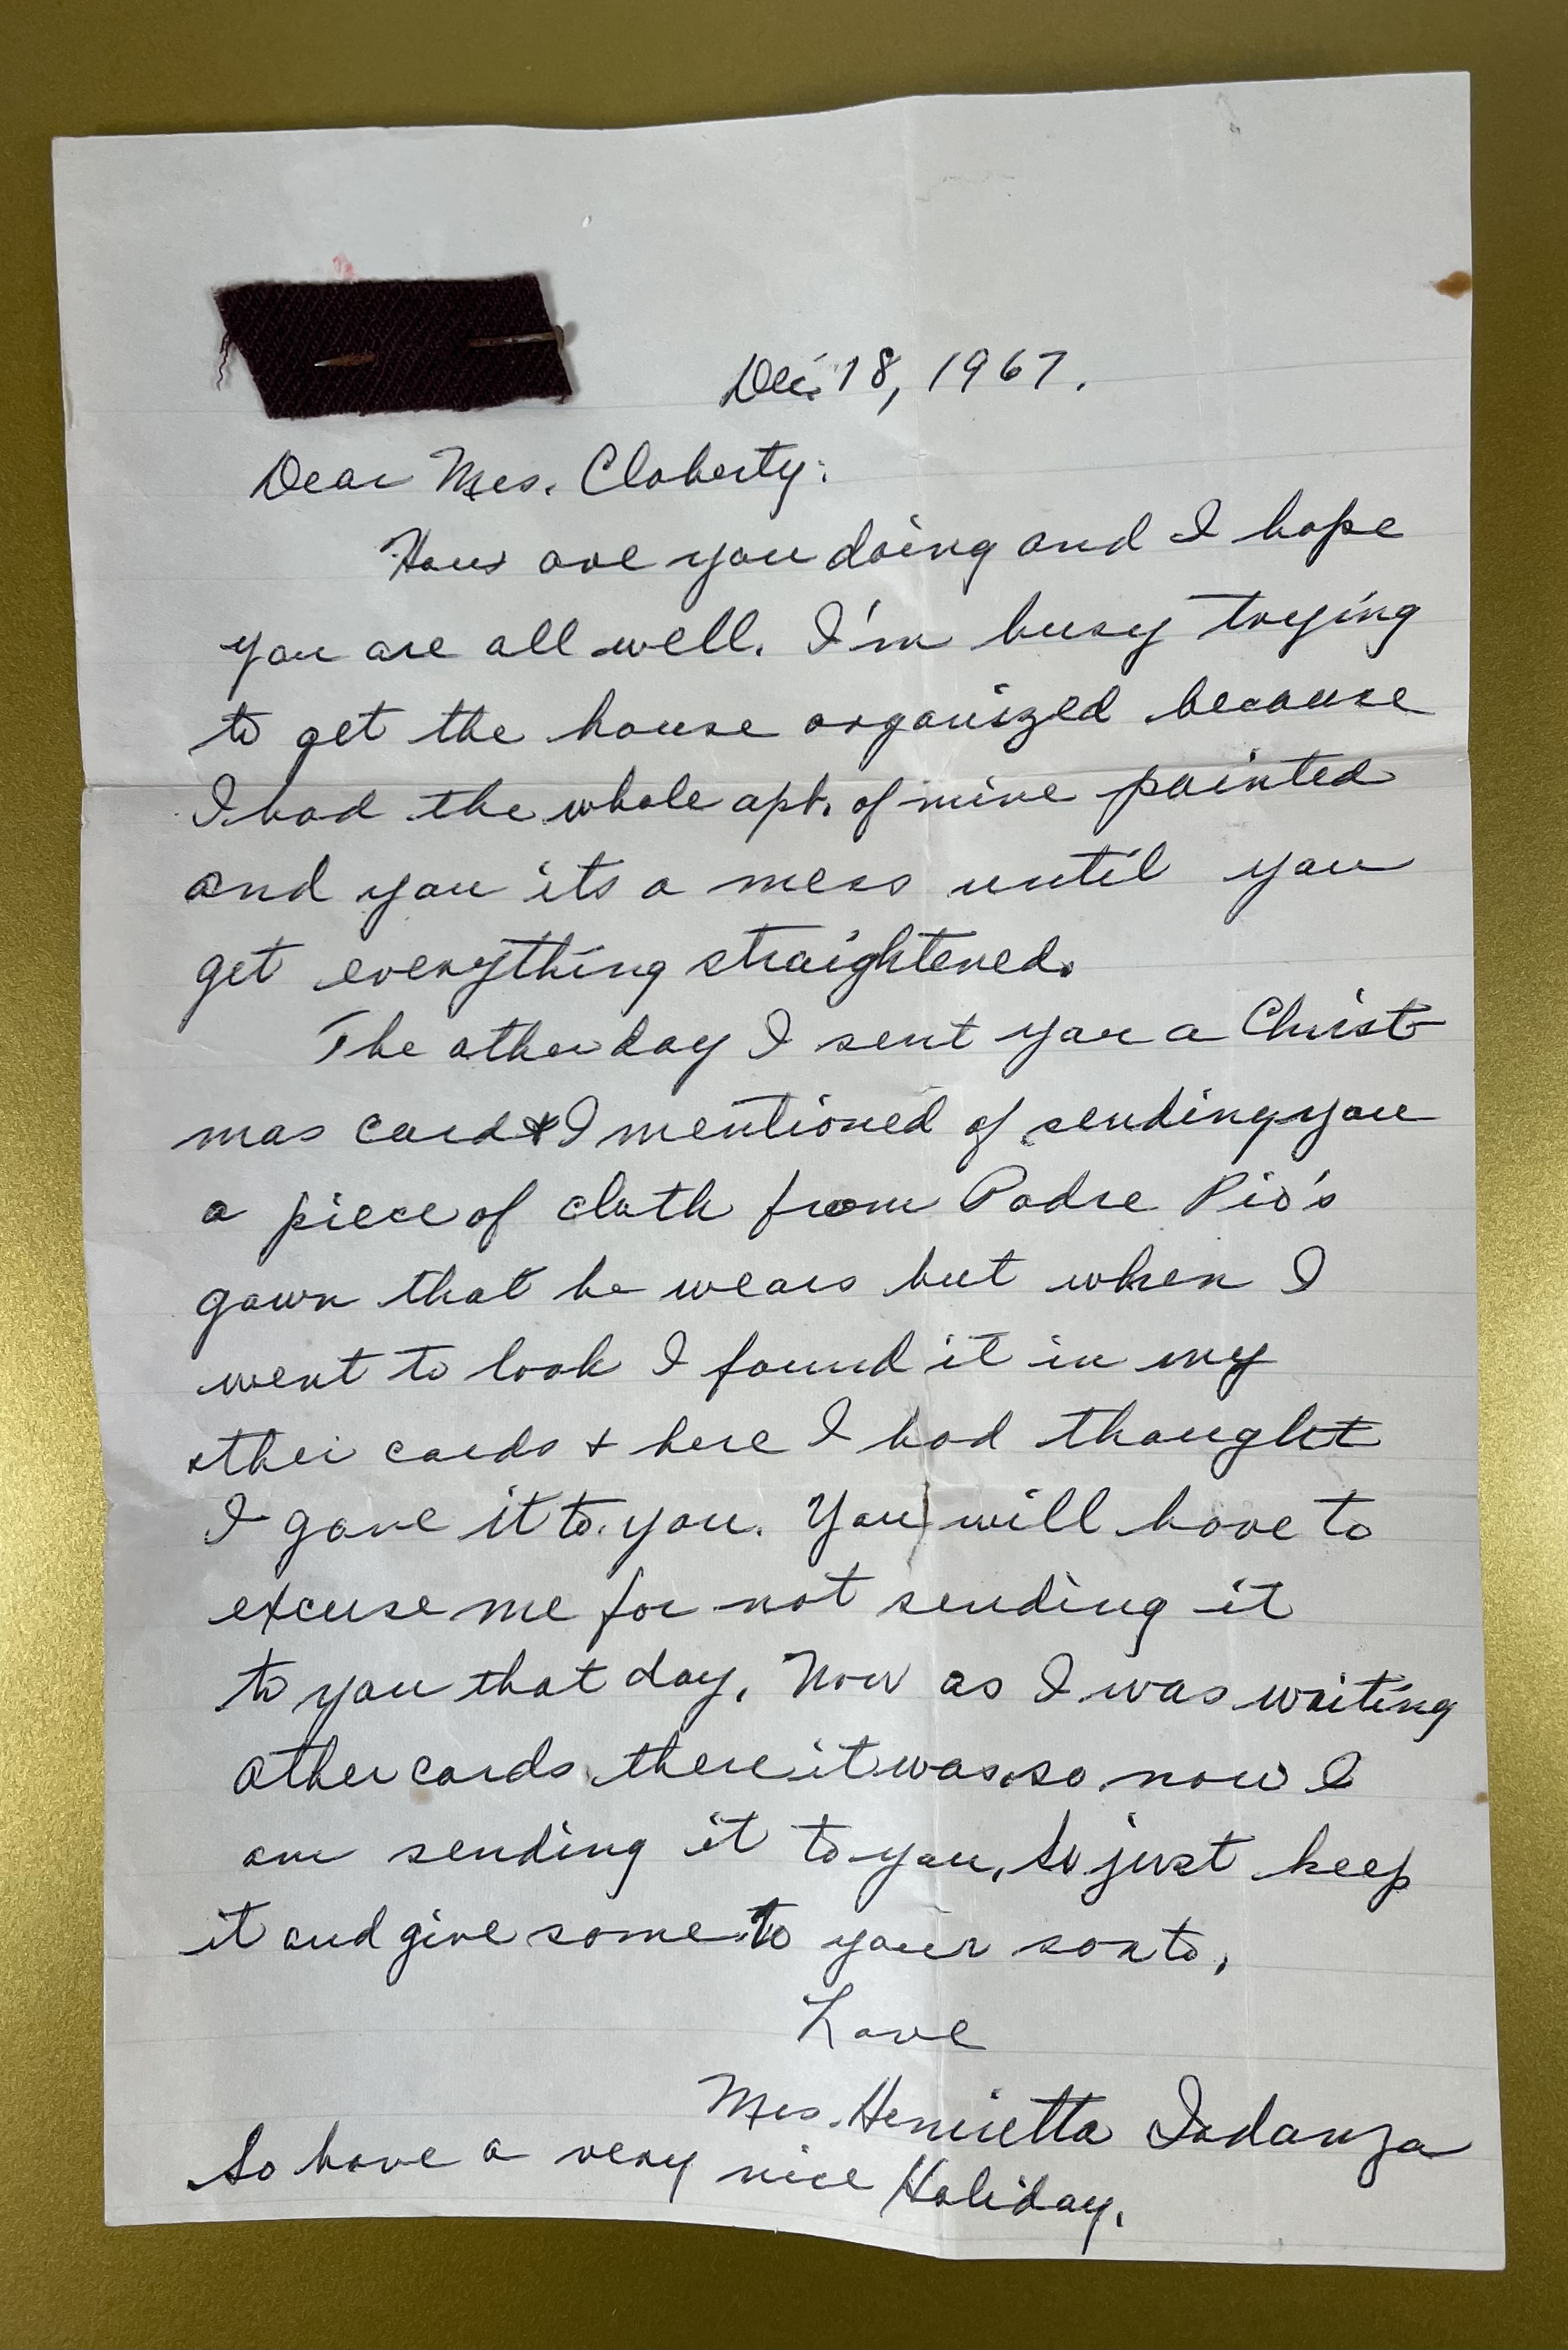 Dec. 18, 1967.
Dear Mrs. Cloherty:
How are you doing and I hope
you are all well. I'm busy trying
to get the house organized because
I had the whole apt. of mine painted
and you its a mess until you
get everything straightened.
The other day I sent you a Christ-
mas card & I mentioned of sending you
a piece of cloth from Padre Pio's
gown that he wears but when I
went to look I found it in my
other cards + here I had thought
I gave it to you. You will have to
excuse me for not sending it
to you that day. Now as I was writing
other cards, there it was, so now I
am sending it to you, So just keep
it and give some to your son to.
Love
Mrs. Henrietta Iadanza
So have a very nice Holiday.